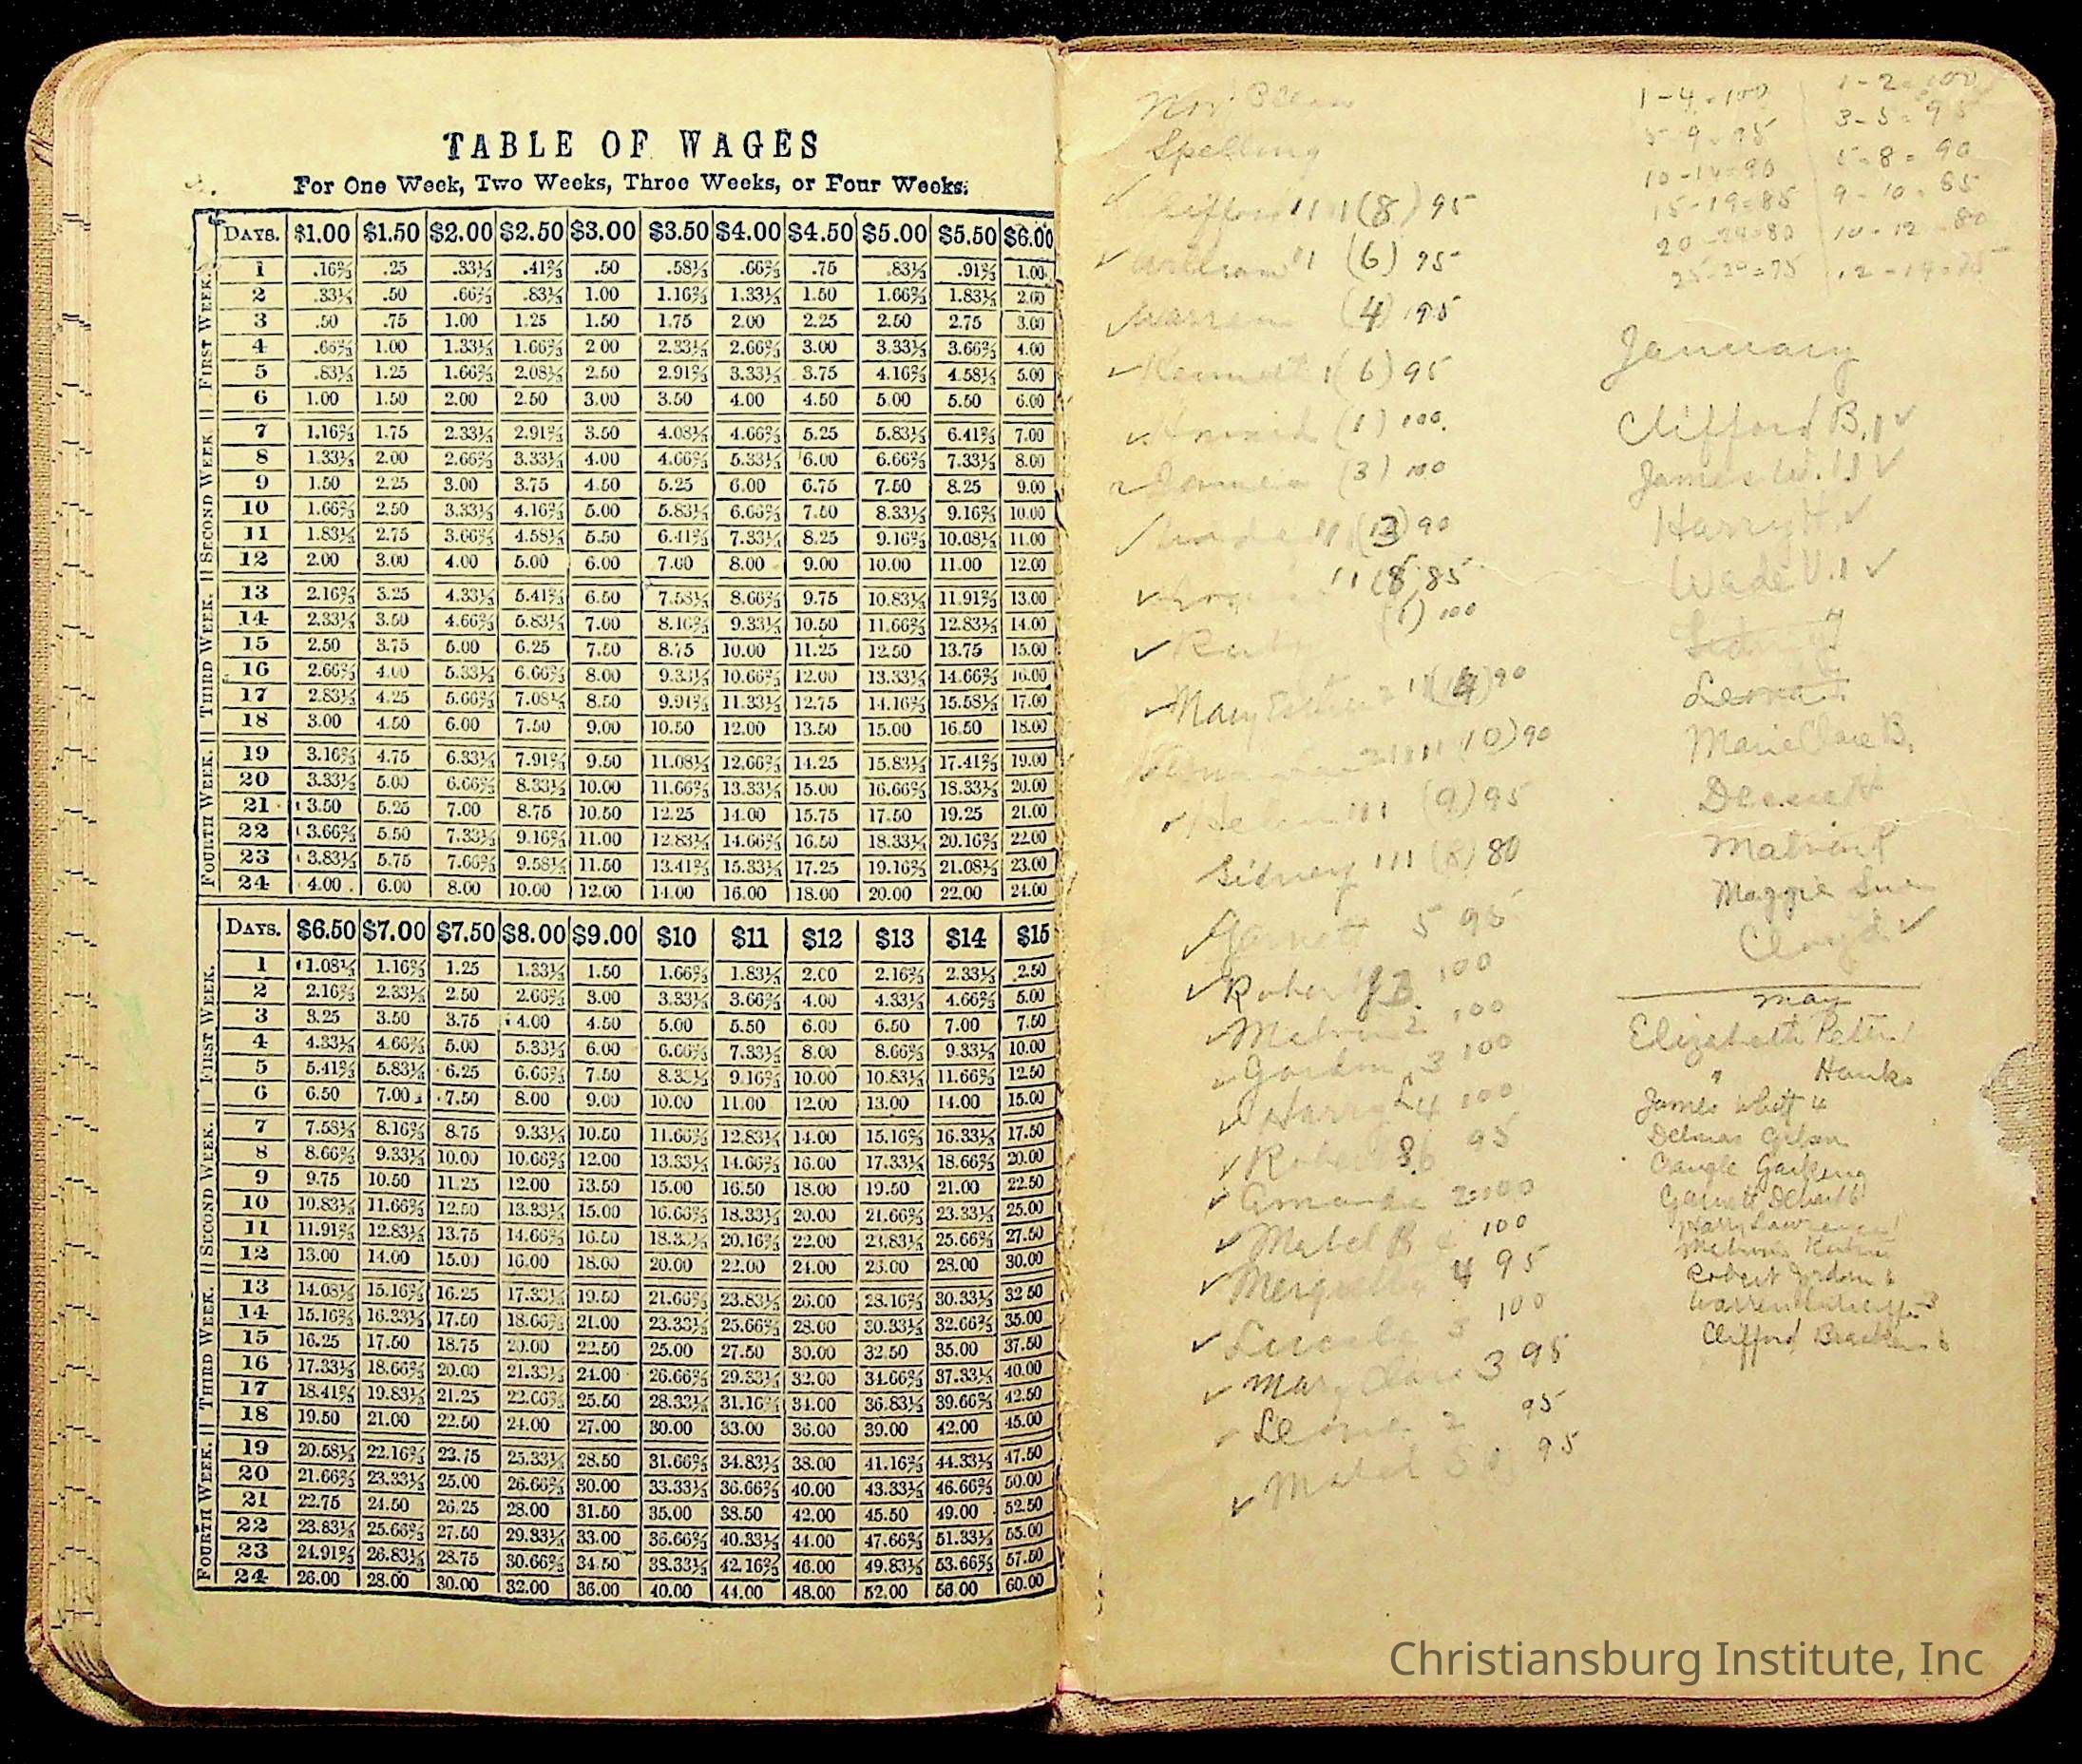 TABLE OF WAGES
For One Week, Two Weeks, Three Weeks, or Four Weeks.
DAYS. $1.00 $1.50 $2.00 $2.50 $3.00 $3.50 $4.00 $4.50 $5.00 $5.50 $6.00
FIRST WEEK.
1 .16⅔ .25 .33⅓ .41⅔ .50 .58⅓ .66⅔ .75 .83⅓ .91⅔ 1.00
2 .33⅓ .50 .66⅔ .83⅓ 1.00 1.16⅔ 1.33⅓ 1.50 1.66⅔ 1.83⅓ 2.00
3 .50 .75 1.00 1.25 1.50 1.75 2.00 2.25 2.50 2.75 3.00
4 .66⅔ 1.00 1.33⅓ 1.66⅔ 2.00 2.33⅓ 2.66⅔ 3.00 3.33⅓ 3.66⅔ 4.00
5 .83⅓ 1.25 1.66⅔ 2.08⅓ 2.50 2.91⅔ 3.33⅓ 3.75 4.16⅔ 4.58⅓ 5.00
6 1.00 1.50 2.00 2.50 3.00 3.50 4.00 4.50 5.00 5.50 6.00
SECOND WEEK
7 1.16⅔ 1.75 2.33⅓ 2.91⅔ 3.50 4.08⅓ 4.66⅔ 5.25 5.83⅓ 6.41⅔ 7.00
8 1.33⅓ 2.00 2.66⅔ 3.33⅓ 4.00 4.66⅔ 5.33⅓ 6.00 6.66⅔ 7.33⅓ 8.00
9 1.50 2.25 3.00 3.75 4.50 5.25 6.00 6.75 7.50 8.25 9.00
10 1.66⅔ 2.50 3.33⅓ 4.16⅔ 5.00 5.83⅓ 6.66⅔ 7.50 8.33⅓ 9.16⅔ 10.00
11 1.83⅓ 2.75 3.66⅔ 4.58⅓ 5.50 6.41⅔ 7.33⅓ 8.25 9.16⅔ 10.08⅓ 11.00
12 2.00 3.00 4.00 5.00 6.00 7.00 8.00 9.00 10.00 11.00 12.00
THIRD WEEK.
13 2.16⅔ 3.25 4.33⅓ 5.41⅔ 6.50 7.58⅓ 8.66⅔ 9.75 10.83⅓ 11.91⅔ 13.00
14 2.33⅓ 3.50 4.66⅔ 5.83⅓ 7.00 8.16⅔ 9.33⅓ 10.50 11.66⅔ 12.83⅓ 14.00
15 2.50 3.75 5.00 6.25 7.50 8.75 10.00 11.25 12.50 13.75 15.00
16 2.66⅔ 4.00 5.33⅓ 6.66⅔ 8.00 9.33⅓ 10.66⅔ 12.00 13.33⅓ 14.66⅔ 16.00
17 2.83⅓ 4.25 5.66⅔ 7.08⅓ 8.50 9.91⅔ 11.33⅓ 12.75 14.16⅔ 15.58⅓ 17.00
18 3.00 4.50 6.00 7.50 9.00 10.50 12.00 13.50 15.00 16.50 18.00
FOURTH WEEK.
19 3.16⅔ 4.75 6.33⅓ 7.91⅔ 9.50 11.08⅓ 12.66⅔ 14.25 15.83⅓ 17.41⅔ 19.00
20 3.33⅓ 5.00 6.66⅔ 8.33⅓ 10.00 11.66⅔ 13.33⅓ 15.00 16.66⅔ 18.33⅓ 20.00
21 3.50 5.25 7.00 8.75 10.50 12.25 14.00 15.75 17.50 19.25 21.00
22 3.66⅔ 5.50 7.33⅓ 9.16⅔ 11.00 12.83⅓ 14.66⅔ 16.50 18.33⅓ 20.16⅔ 22.00
23 3.83⅓ 5.75 7.66⅔ 9.58⅓ 11.50 13.41⅔ 15.33⅓ 17.25 19.16⅔ 21.08⅓ 23.00
24 4.00 6.00 8.00 10.00 12.00 14.00 16.00 18.00 20.00 22.00 24.00
DAYS. $6.50 $7.00 $7.50 $8.00 $9.00 $10 $11 $12 $13 $14 $15
FIRST WEEK.
1 1.08⅓ 1.16⅔ 1.25 1.33⅓ 1.50 1.66⅔ 1.83⅓ 2.00 2.16⅔ 2.33⅓ 2.50
2 2.16⅔ 2.33⅓ 2.50 2.66⅔ 3.00 3.33⅓ 3.66⅔ 4.00 4.33⅓ 4.66⅔ 5.00
3 3.25 3.50 3.75 4.00 4.50 5.00 5.50 6.00 6.50 7.00 7.50
4 4.33⅓ 4.66⅔ 5.00 5.33⅓ 6.00 6.66⅔ 7.33⅓ 8.00 8.66⅔ 9.33⅓ 10.00
5 5.41⅔ 5.83⅓ 6.25 6.66⅔ 7.50 8.33⅓ 9.16⅔ 10.00 10.83⅓ 11.66⅔ 12.50
6 6.50 7.00 7.50 8.00 9.00 10.00 11.00 12.00 13.00 14.00 15.00
SECOND WEEK.
7 7.58⅓ 8.16⅔ 8.75 9.33⅓ 10.50 11.66⅔ 12.83⅓ 14.00 15.16⅔ 16.33⅓ 17.50
8 8.66⅔ 9.33⅓ 10.00 10.66⅔ 12.00 13.33⅓ 14.66⅔ 16.00 17.33⅓ 18.66⅔ 20.00
9 9.75 10.50 11.25 12.00 13.50 15.00 16.50 18.00 19.50 21.00 22.50
10 10.83⅓ 11.66⅔ 12.50 13.33⅓ 15.00 16.66⅔ 18.33⅓ 20.00 21.66⅔ 23.33⅓ 25.00
11 11.91⅔ 12.83⅓ 13.75 14.66⅔ 16.50 18.33⅓ 20.16⅔ 22.00 23.83⅓ 25.66⅔ 27.50
12 13.00 14.00 15.00 16.00 18.00 20.00 22.00 24.00 26.00 28.00 30.00
THIRD WEEK.
13 14.08⅓ 15.16⅔ 16.25 17.33⅓ 19.50 21.66⅔ 23.83⅓ 26.00 28.16⅔ 30.33⅓ 32.50
14 15.16⅔ 16.33⅓ 17.50 18.66⅔ 21.00 23.33⅓ 25.66⅔ 28.00 30.33⅓ 32.66⅔ 35.00
15 16.25 17.50 18.75 20.00 22.50 25.00 27.50 30.00 32.50 35.00 37.50
16 17.33⅓ 18.66⅔ 20.00 21.33⅓ 24.00 26.66⅔ 29.33⅓ 32.00 34.66⅔ 37.33⅓ 40.00
17 18.41⅔ 19.83⅓ 21.25 22.66⅔ 25.50 28.33⅓ 31.16⅔ 34.00 36.83⅓ 39.66⅔ 42.50
18 19.50 21.00 22.50 24.00 27.00 30.00 33.00 36.00 39.00 42.00 45.00
FOURTH WEEK.
19 20.58⅓ 22.16⅔ 23.75 25.33⅓ 28.50 31.66⅔ 34.83⅓ 38.00 41.16⅔ 44.33⅓ 47.50
20 21.66⅔ 23.33⅓ 25.00 26.66⅔ 30.00 33.33⅓ 36.66⅔ 40.00 43.33⅓ 46.66⅔ 50.00
21 22.75 24.50 26.25 28.00 31.50 35.00 38.50 42.00 45.50 49.00 52.50
22 23.83⅓ 25.66⅔ 27.50 29.33⅓ 33.00 36.66⅔ 40.33⅓ 44.00 47.66⅔ 51.33⅓ 55.00
23 24.91⅔ 26.83⅓ 28.75 30.66⅔ 34.50 38.33⅓ 42.16⅔ 46.00 49.83⅓ 53.66⅔ 57.50
24 26.00 28.00 30.00 32.00 36.00 40.00 44.00 48.00 52.00 56.00 60.00
Spelling
Clifford 111 1 (8) 95
William 11 (6) 95
Warren (4) 95
1 (6) 95
(1) 100
James (3) 100
Wade 111 (13) 90
11 (8) 85
Ruby (1) 100
Mary Esther 90
(10) 90
Helen 111 (9) 95
Sidney 111 (8) 80
Garnett 5 95
Robert 100
Melvin 2 100
Gordon 3 100
Harry L 4 100
Robert 95
Amanda 2 100
Mabel B 100
4 95
Lucile 3 100
Mary Clare 3 95
Leona 2 95
Mabel S 95
1-4=100
5-9=95
10-14=90
15-19=85
20-24=80
1-2=100
3-5=95
5-8=90
9-10=85
10-12=80
12-14=75
January
Clifford B. 1 ✓
James W. ✓
Harry ✓
Wade V. 1 ✓
Sidney
Leona
Marie Clare B.
Maggie Sue
✓
May
Elizabeth
" Hanks
James
Delmas
Garnett
Harry Lawrence
Robert Gordon
Warren
Clifford
Christiansburg Institute, Inc